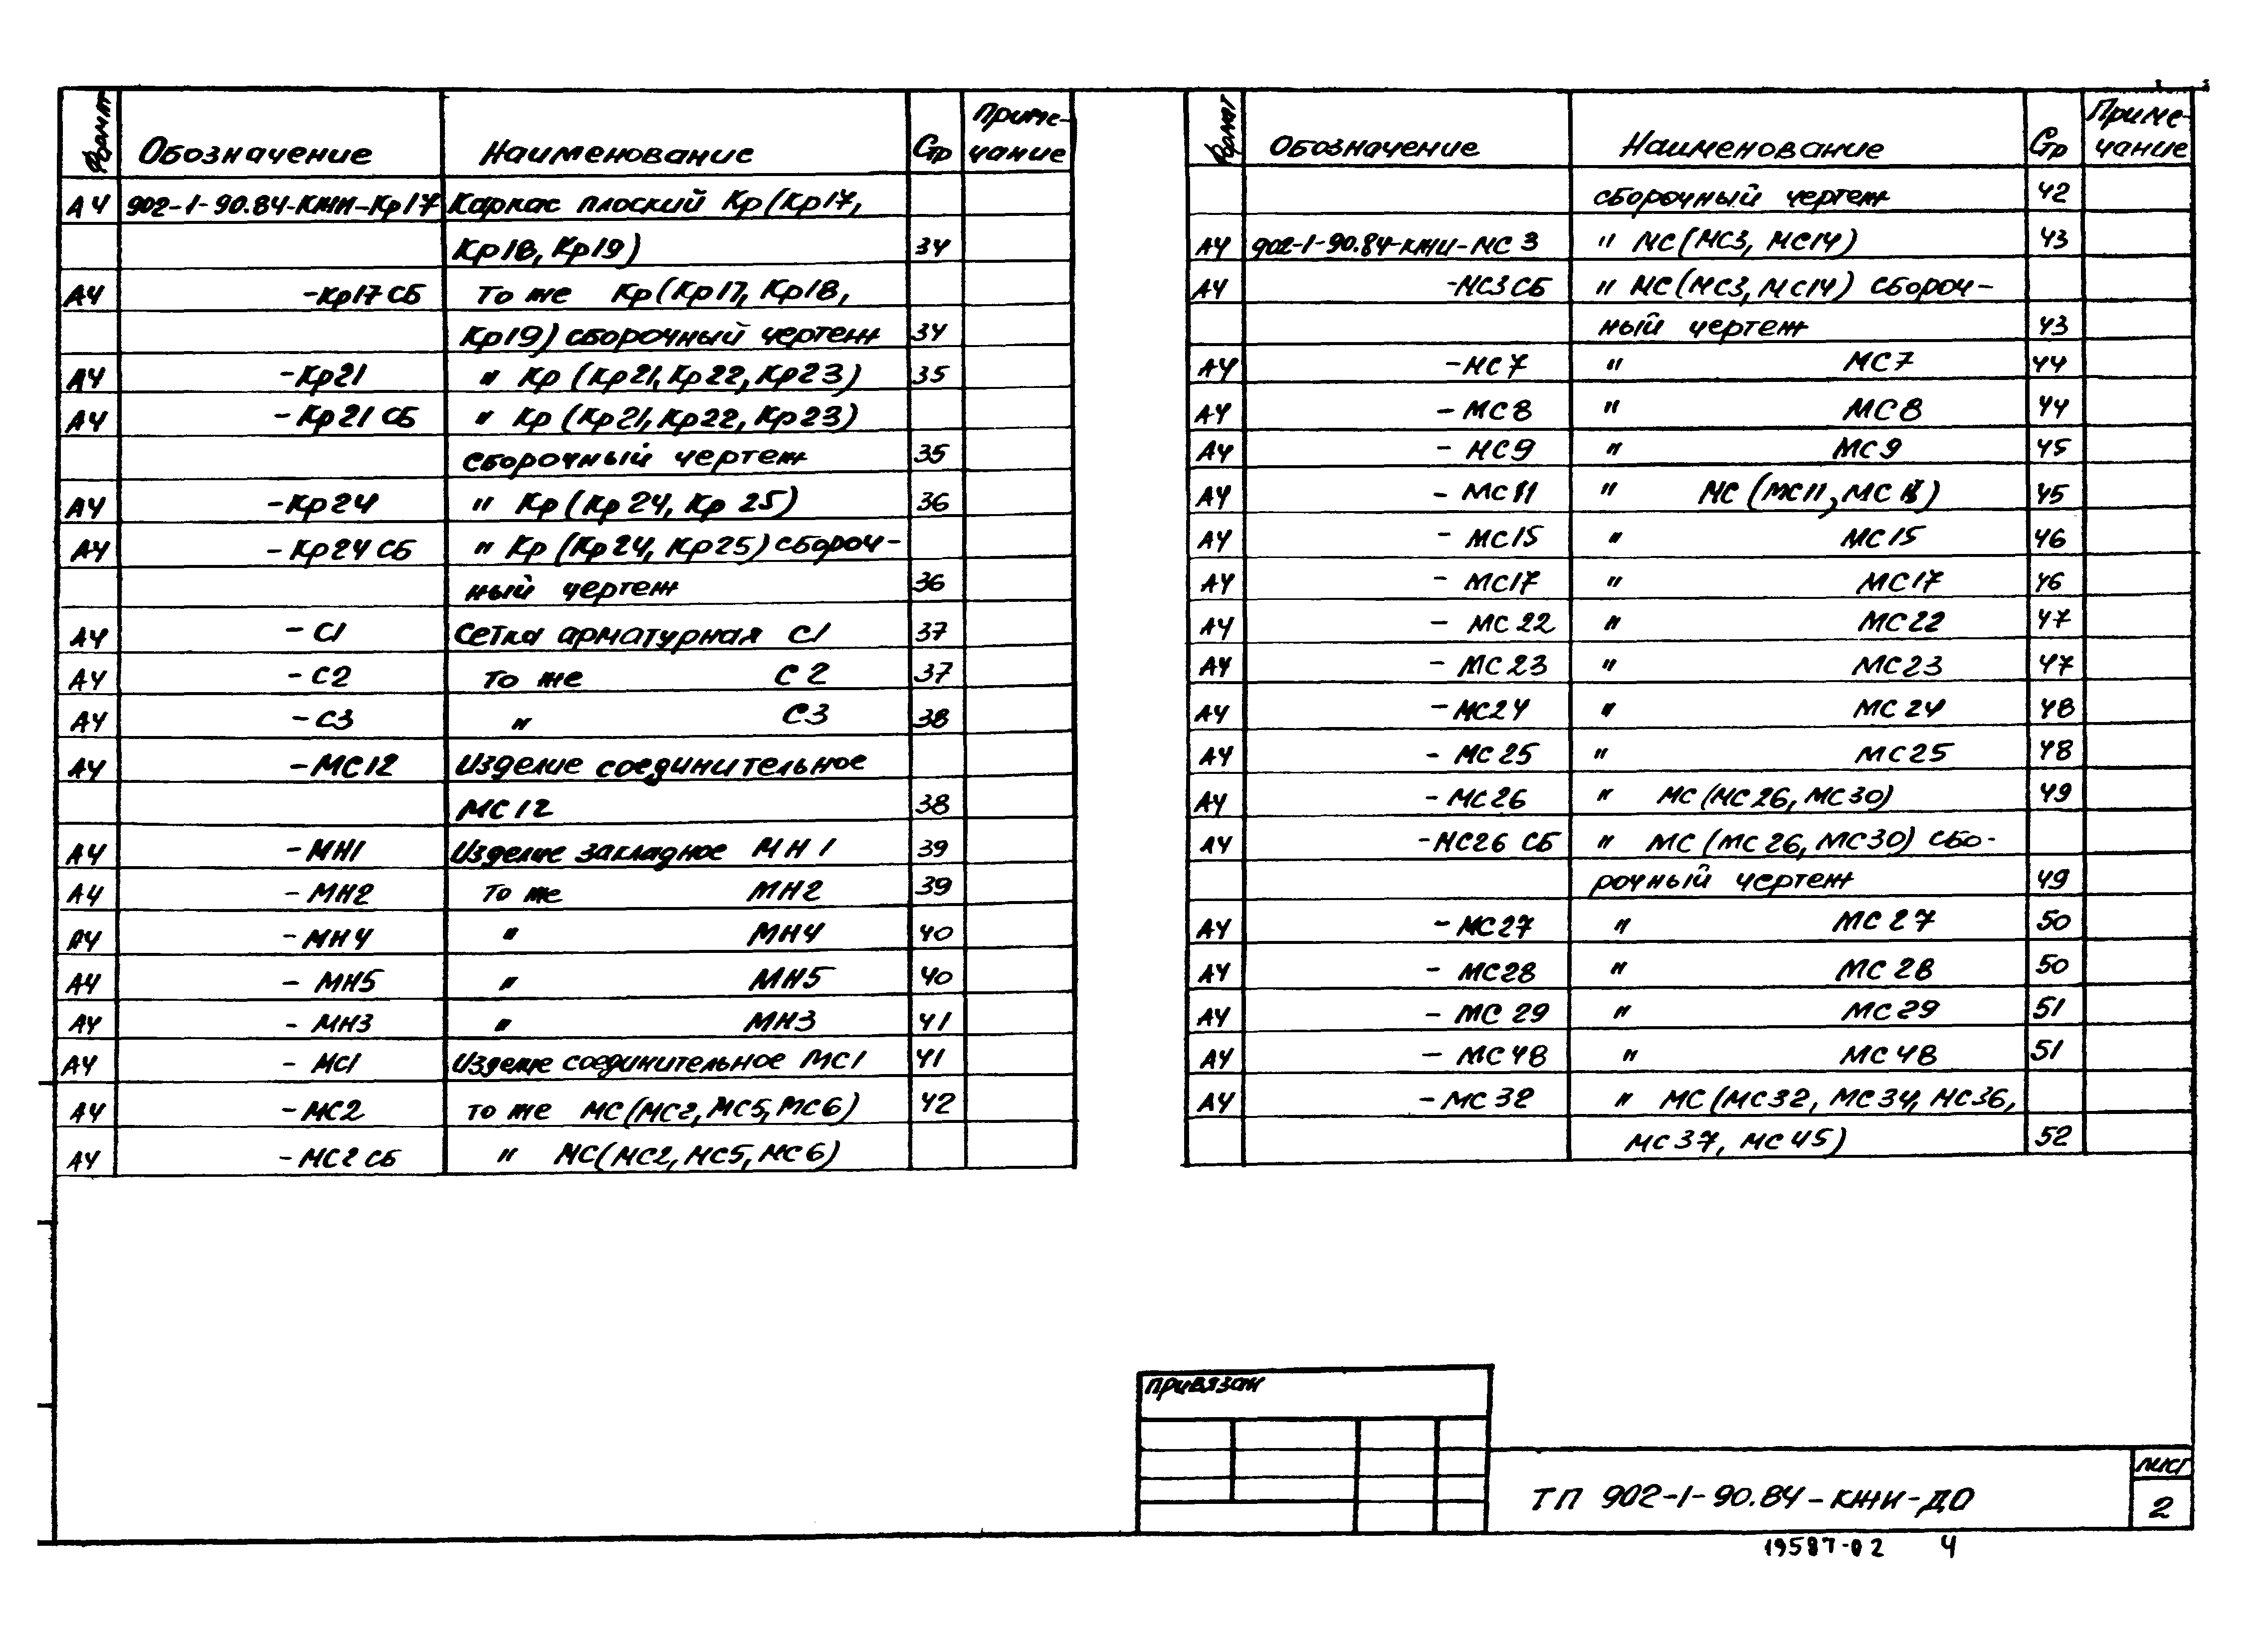 Формат Обозначение Наименование Стр Приме-
чание
А4 902-1-90.84-КЖИ-Кр17 Каркас плоский Кр(Кр17,
Кр18, Кр19) 34
А4 -Кр17 СБ То же Кр(Кр17, Кр18,
Кр19) сборочный чертеж 34
А4 -Кр21 " Кр (Кр21, Кр22, Кр23) 35
А4 -Кр21 СБ " Кр (Кр21, Кр22, Кр23)
сборочный чертеж 35
А4 -Кр24 " Кр (Кр24, Кр 25) 36
А4 -Кр24 СБ " Кр (Кр24, Кр25) сбороч-
ный чертеж 36
А4 -С1 Сетка арматурная С1 37
А4 -С2 То же С2 37
А4 -С3 " С3 38
А4 -МС12 Изделие соединительное
МС12 38
А4 -МН1 Изделие закладное МН1 39
А4 -МН2 То же МН2 39
А4 -МН4 " МН4 40
А4 -МН5 " МН5 40
А4 -МН3 " МН3 41
А4 -МС1 Изделие соединительное МС1 41
А4 -МС2 То же МС(МС2, МС5, МС6) 42
А4 -МС2 СБ " МС(МС2, МС5, МС6)
Формат Обозначение Наименование Стр Приме-
чание
сборочный чертеж 42
А4 902-1-90.84-КЖИ-МС 3 " МС(МС3, МС14) 43
А4 -МС3 СБ " МС(МС3, МС14) сбороч-
ный чертеж 43
А4 -МС7 " МС7 44
А4 -МС8 " МС8 44
А4 -МС9 " МС9 45
А4 -МС11 " МС (МС11, МС ) 45
А4 -МС15 " МС15 46
А4 -МС17 " МС17 46
А4 -МС22 " МС22 47
А4 -МС23 " МС23 47
А4 -МС24 " МС24 48
А4 -МС25 " МС25 48
А4 -МС26 " МС(МС26, МС30) 49
А4 -МС26 СБ " МС (МС26, МС30) сбо-
рочный чертеж 49
А4 -МС27 " МС27 50
А4 -МС28 " МС28 50
А4 -МС29 " МС29 51
А4 -МС48 " МС48 51
А4 -МС32 " МС(МС32, МС34, МС36,
МС37, МС45) 52
Привязан
ТП 902-1-90.84-КЖИ-ДО
лист
2
19587-02 4